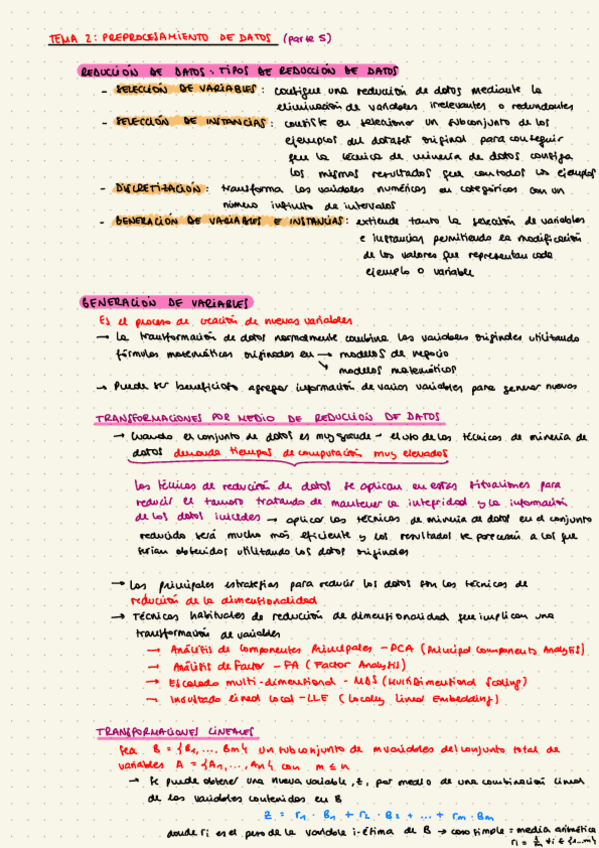 TEMA 2: PREPROCESAMIENTO DE DATOS (parte 5)
REDUCCIÓN DE DATOS: TIPOS DE REDUCCIÓN DE DATOS
- SELECCIÓN DE VARIABLES: consigue una reducción de datos mediante la
eliminación de variables irrelevantes o redundantes
- SELECCIÓN DE INSTANCIAS: consiste en seleccionar un subconjunto de los
ejemplos del dataset original para conseguir
que la técnica de minería de datos consiga
los mismos resultados que con todos los ejemplos
- DISCRETIZACIÓN: transforma las variables numéricas en categóricas con un
número infinito de intervalos
- GENERACIÓN DE VARIABLES E INSTANCIAS: extiende tanto la selección de variables
e instancias permitiendo la modificación
de los valores que representan cada
ejemplo o variable
GENERACIÓN DE VARIABLES
Es el proceso de creación de nuevas variables
→ La transformación de datos normalmente combina las variables originales utilizando
fórmulas matemáticas originadas en → modelos de negocio
↘ modelos matemáticos
→ Puede ser beneficioso agregar información de varias variables para generar nuevas
TRANSFORMACIONES POR MEDIO DE REDUCCIÓN DE DATOS
→ Cuando el conjunto de datos es muy grande - el uso de las técnicas de minería de
datos demanda tiempos de computación muy elevados
Las técnicas de reducción de datos se aplican en estas situaciones para
reducir el tamaño tratando de mantener la integridad y la información
de los datos iniciales → aplicar las técnicas de minería de datos en el conjunto
reducido será mucho más eficiente y los resultados se parecerán a los que
serían obtenidos utilizando los datos originales
→ Las principales estrategias para reducir los datos son las técnicas de
reducción de la dimensionalidad
→ Técnicas habituales de reducción de dimensionalidad que implican una
transformación de variables
→ Análisis de Componentes Principales - PCA (Principal Components Analysis)
→ Análisis de Factor - FA (Factor Analysis)
→ Escalado multi-dimensional - MDS (Multidimensional Scaling)
→ Incrustado lineal local - LLE (Locally Linear Embedding)
TRANSFORMACIONES LINEALES
Sea B = {B1, ..., Bm} un subconjunto de m variables del conjunto total de
variables A = {A1, ..., An} con m ≤ n
→ Se puede obtener una nueva variable, z, por medio de una combinación lineal
de las variables contenidas en B
z = r1 · B1 + r2 · B2 + ... + rm · Bm
donde ri es el peso de la variable i-ésima de B → caso simple = media aritmética